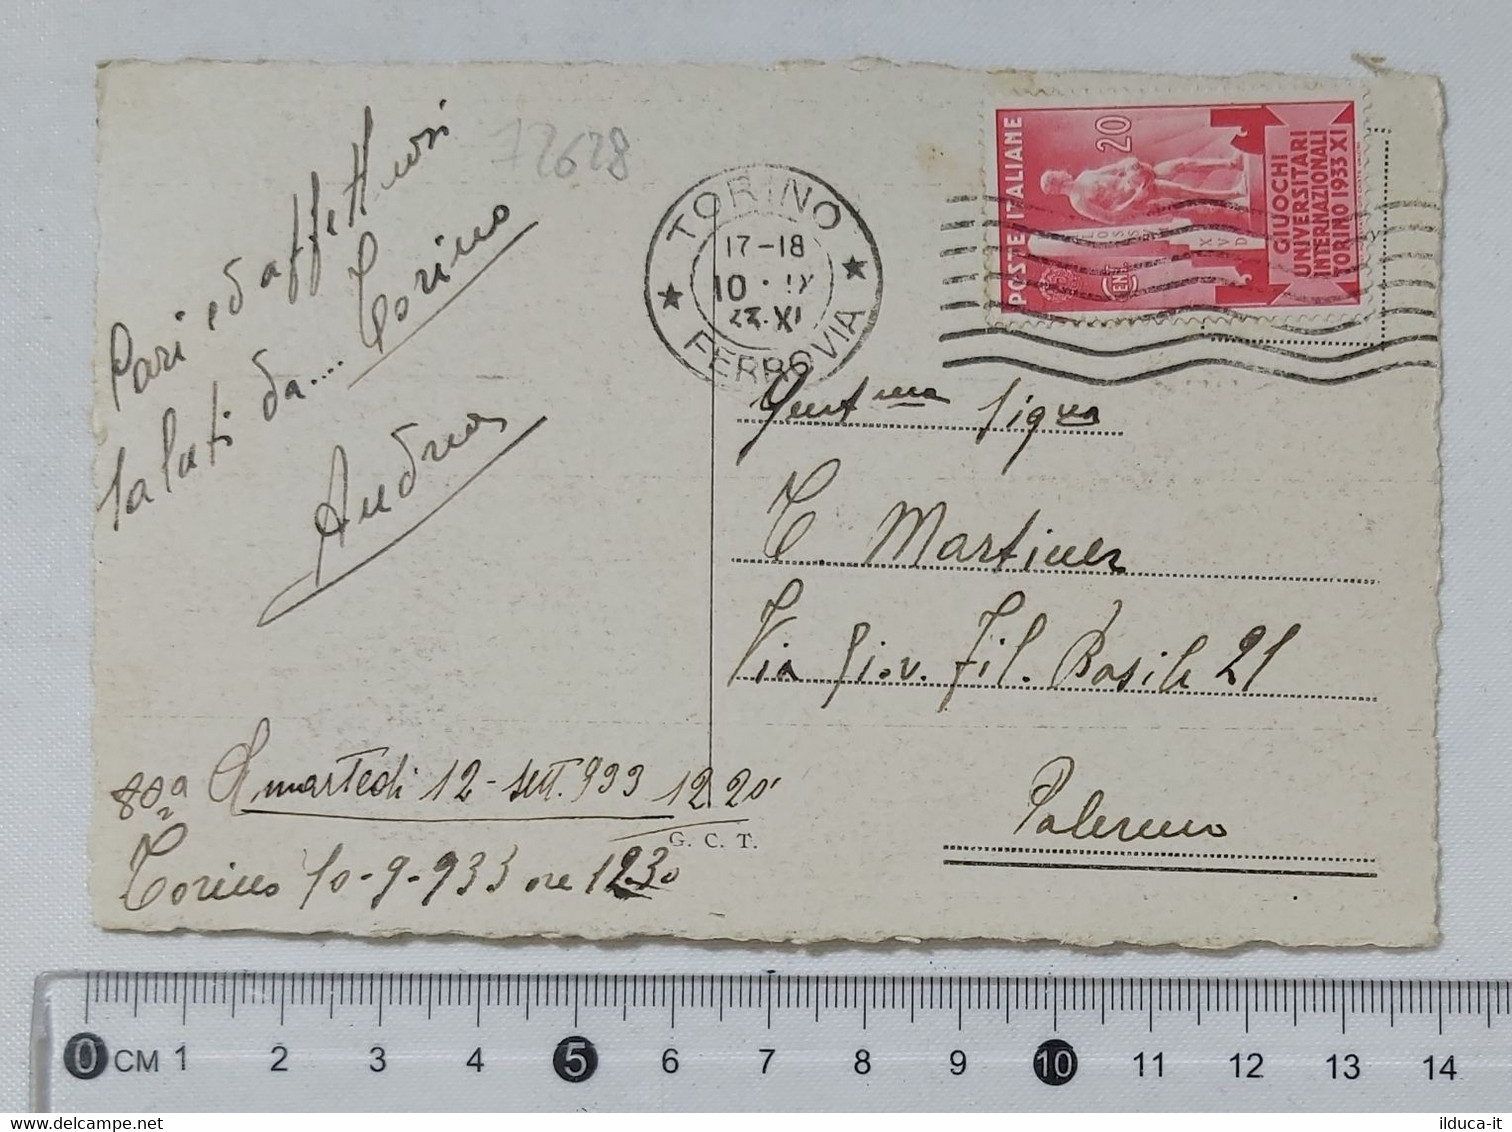 Cari ed affettuosi
saluti da.... Torino
Andrea
72628
TORINO
17-18
10 · IX
XI
FERROVIA
POSTE ITALIANE
20
CENT
GIUOCHI
UNIVERSITARI
INTERNAZIONALI
TORINO 1933 XI
Gent.ma Sig.ra
C Martinez
Via Giov. Fil. Basile 21
Palermo
80a A martedi 12 - sett. 933 12 20'
Torino 10-9-933 ore 12.30
G. C. T.
0 CM 1 2 3 4 5 6 7 8 9 10 11 12 13 14
ilduca-it